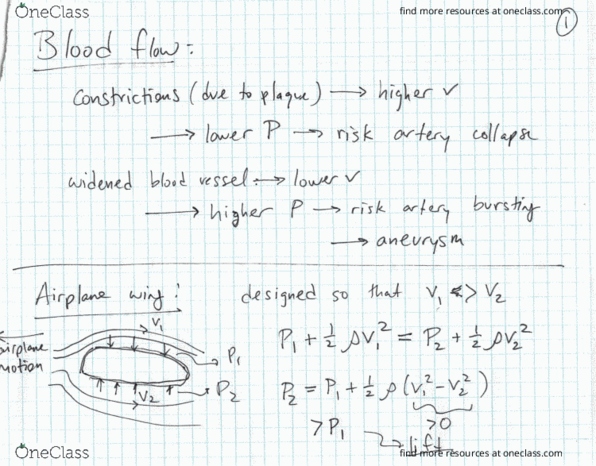 OneClass
find more resources at oneclass.com
1
Blood flow:
constrictions (due to plaque) → higher v
→ lower P → risk artery collapse
widened blood vessel → lower v
→ higher P → risk artery bursting
→ aneurysm
Airplane wing: designed so that v₁ > v₂
v₁
P₁ + ½ ρv₁² = P₂ + ½ ρv₂²
airplane
motion
P₁
P₂
v₂
P₂ = P₁ + ½ ρ (v₁² - v₂²)
>0
> P₁ → lift
OneClass
find more resources at oneclass.com